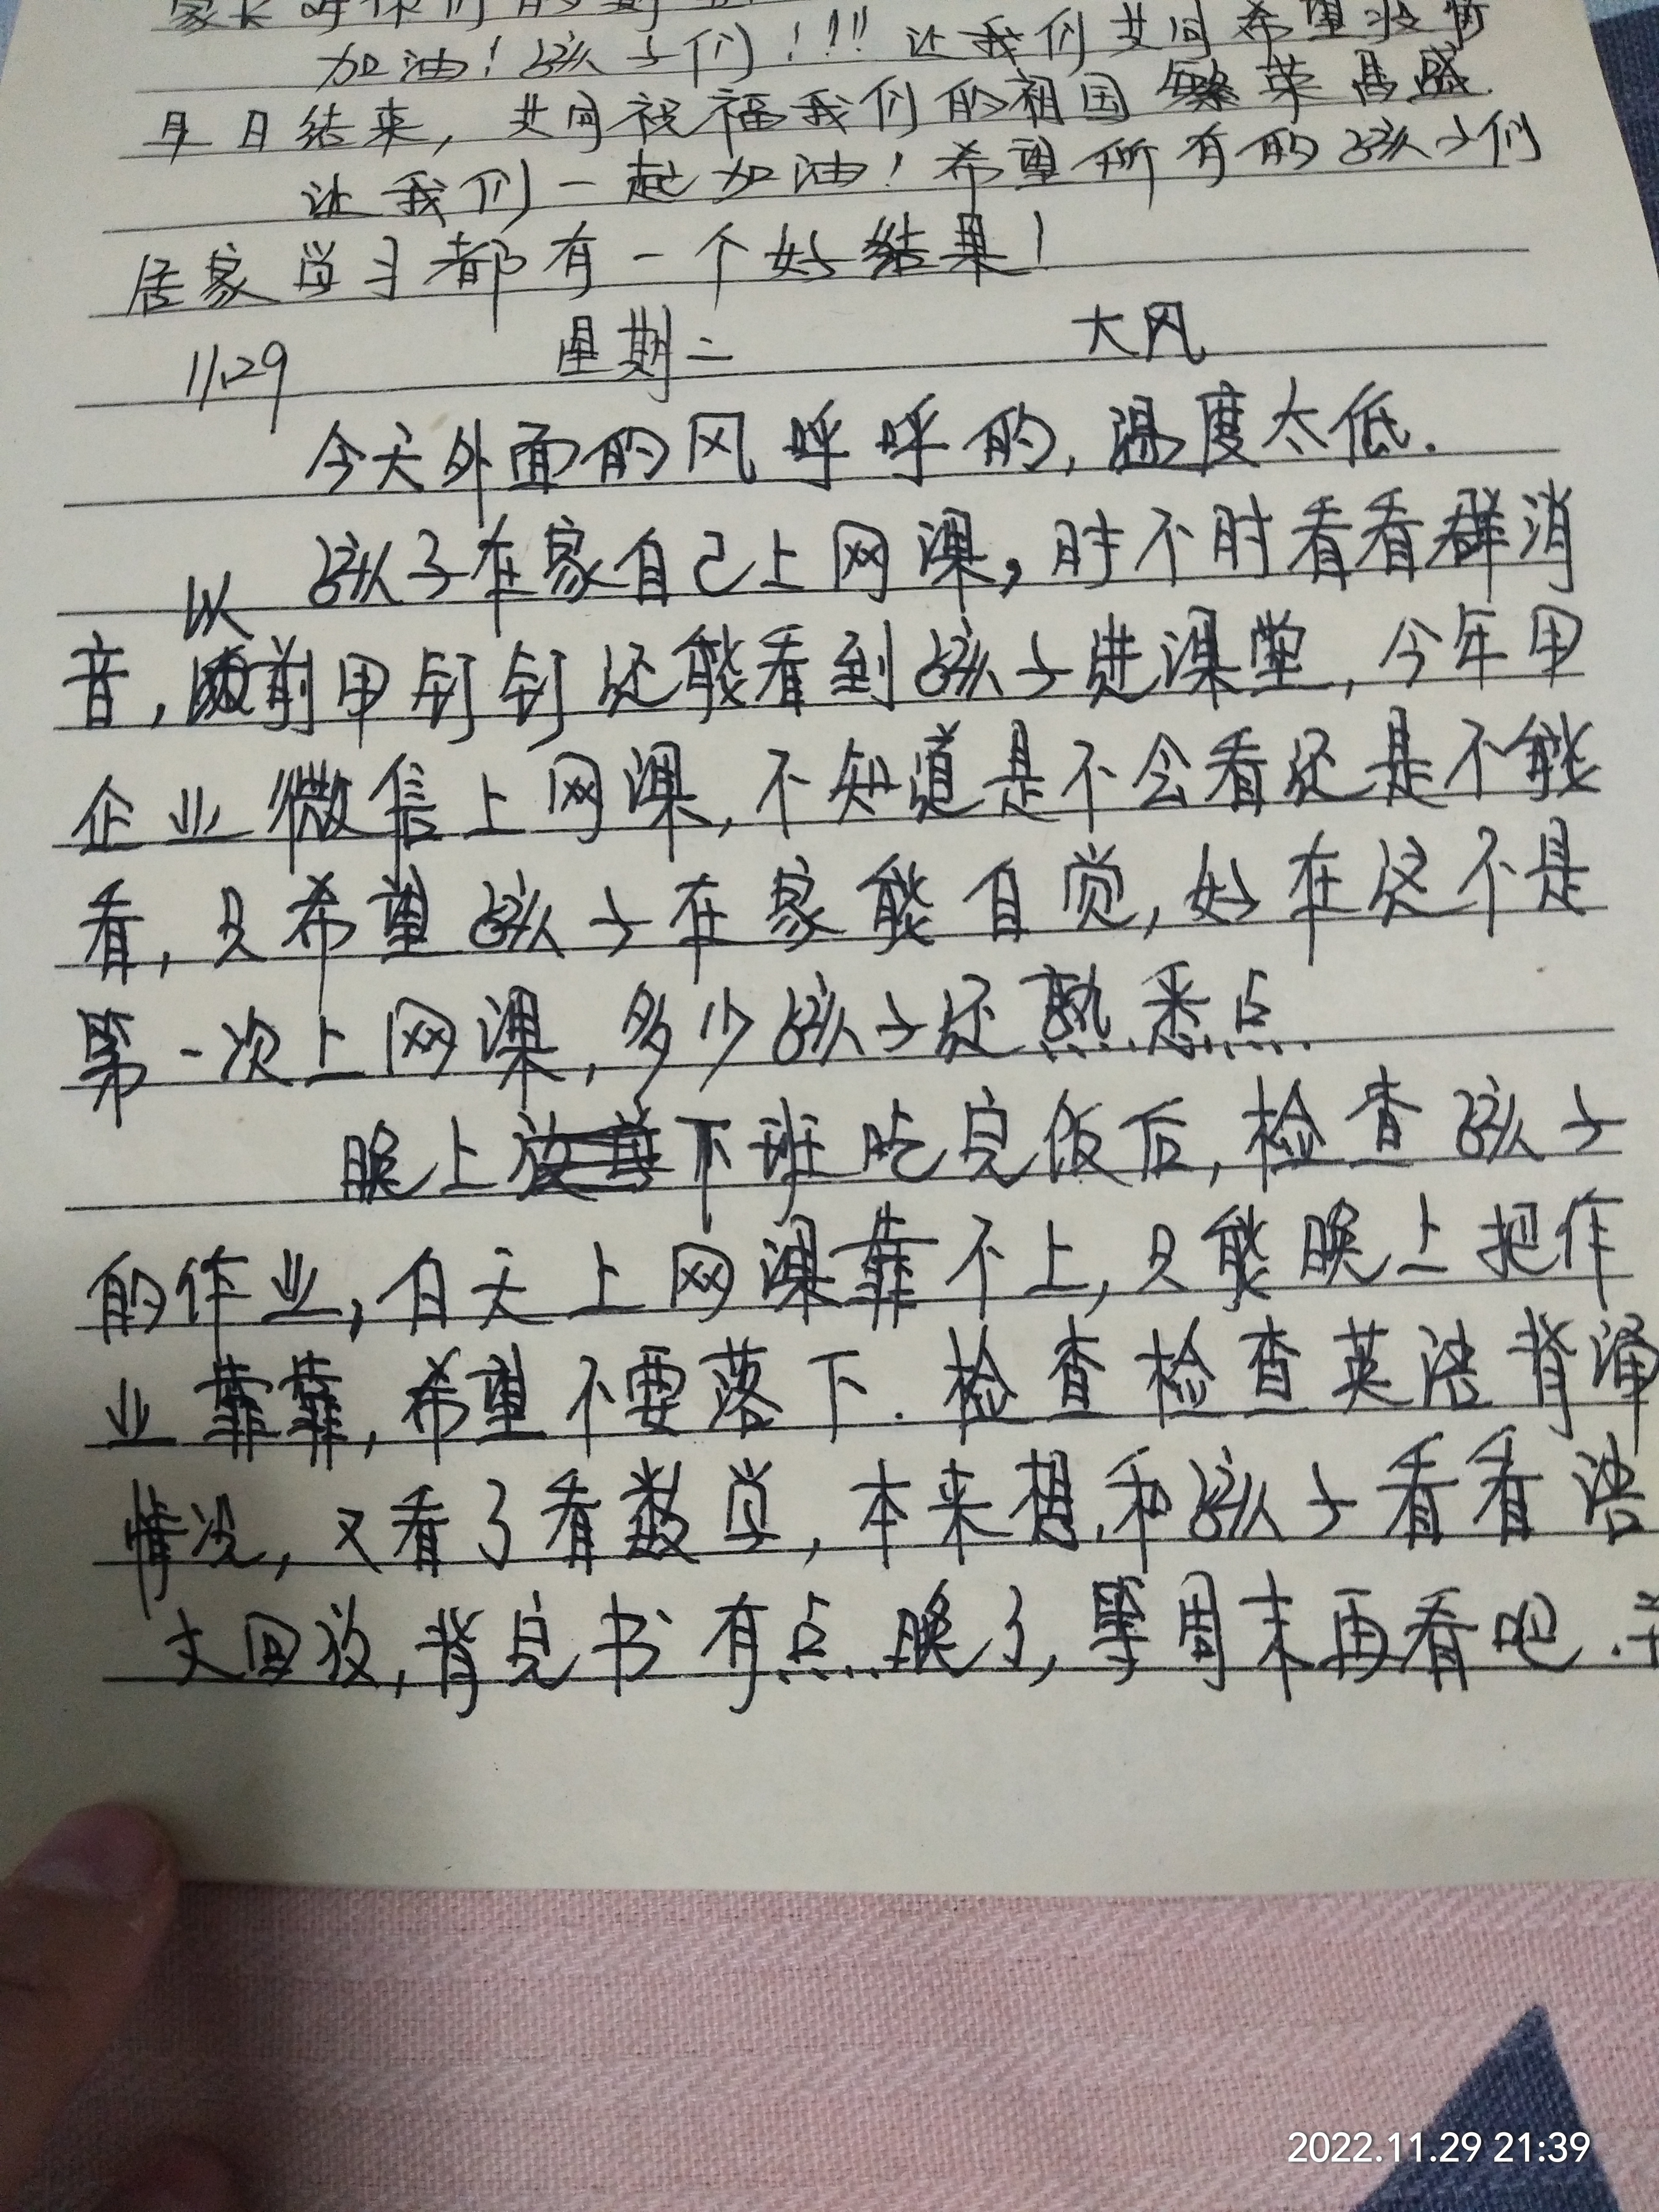 家长对你们的期
加油！孩子们！！！让我们共同希望疫情
早日结束，共同祝福我们的祖国繁荣昌盛.
让我们一起加油！希望所有的孩子们
居家学习都有一个好结果！
11.29 星期二 大风
今天外面的风呼呼的，温度太低.
孩子在家自己上网课，时不时看看群消
以
音，前用钉钉还能看到孩子进课堂，今年用
企业微信上网课，不知道是不会看还是不能
看，只希望孩子在家能自觉，好在这不是
第一次上网课，多少孩子还熟悉点.
晚上下班吃完饭后，检查孩子
的作业，白天上网课靠不上，只能晚上把作
业靠靠，希望不要落下.检查检查英语背诵
情况，又看了看数学，本来想和孩子看看语
文回放，背完书有点晚了，等周末再看吧.
2022.11.29 21:39